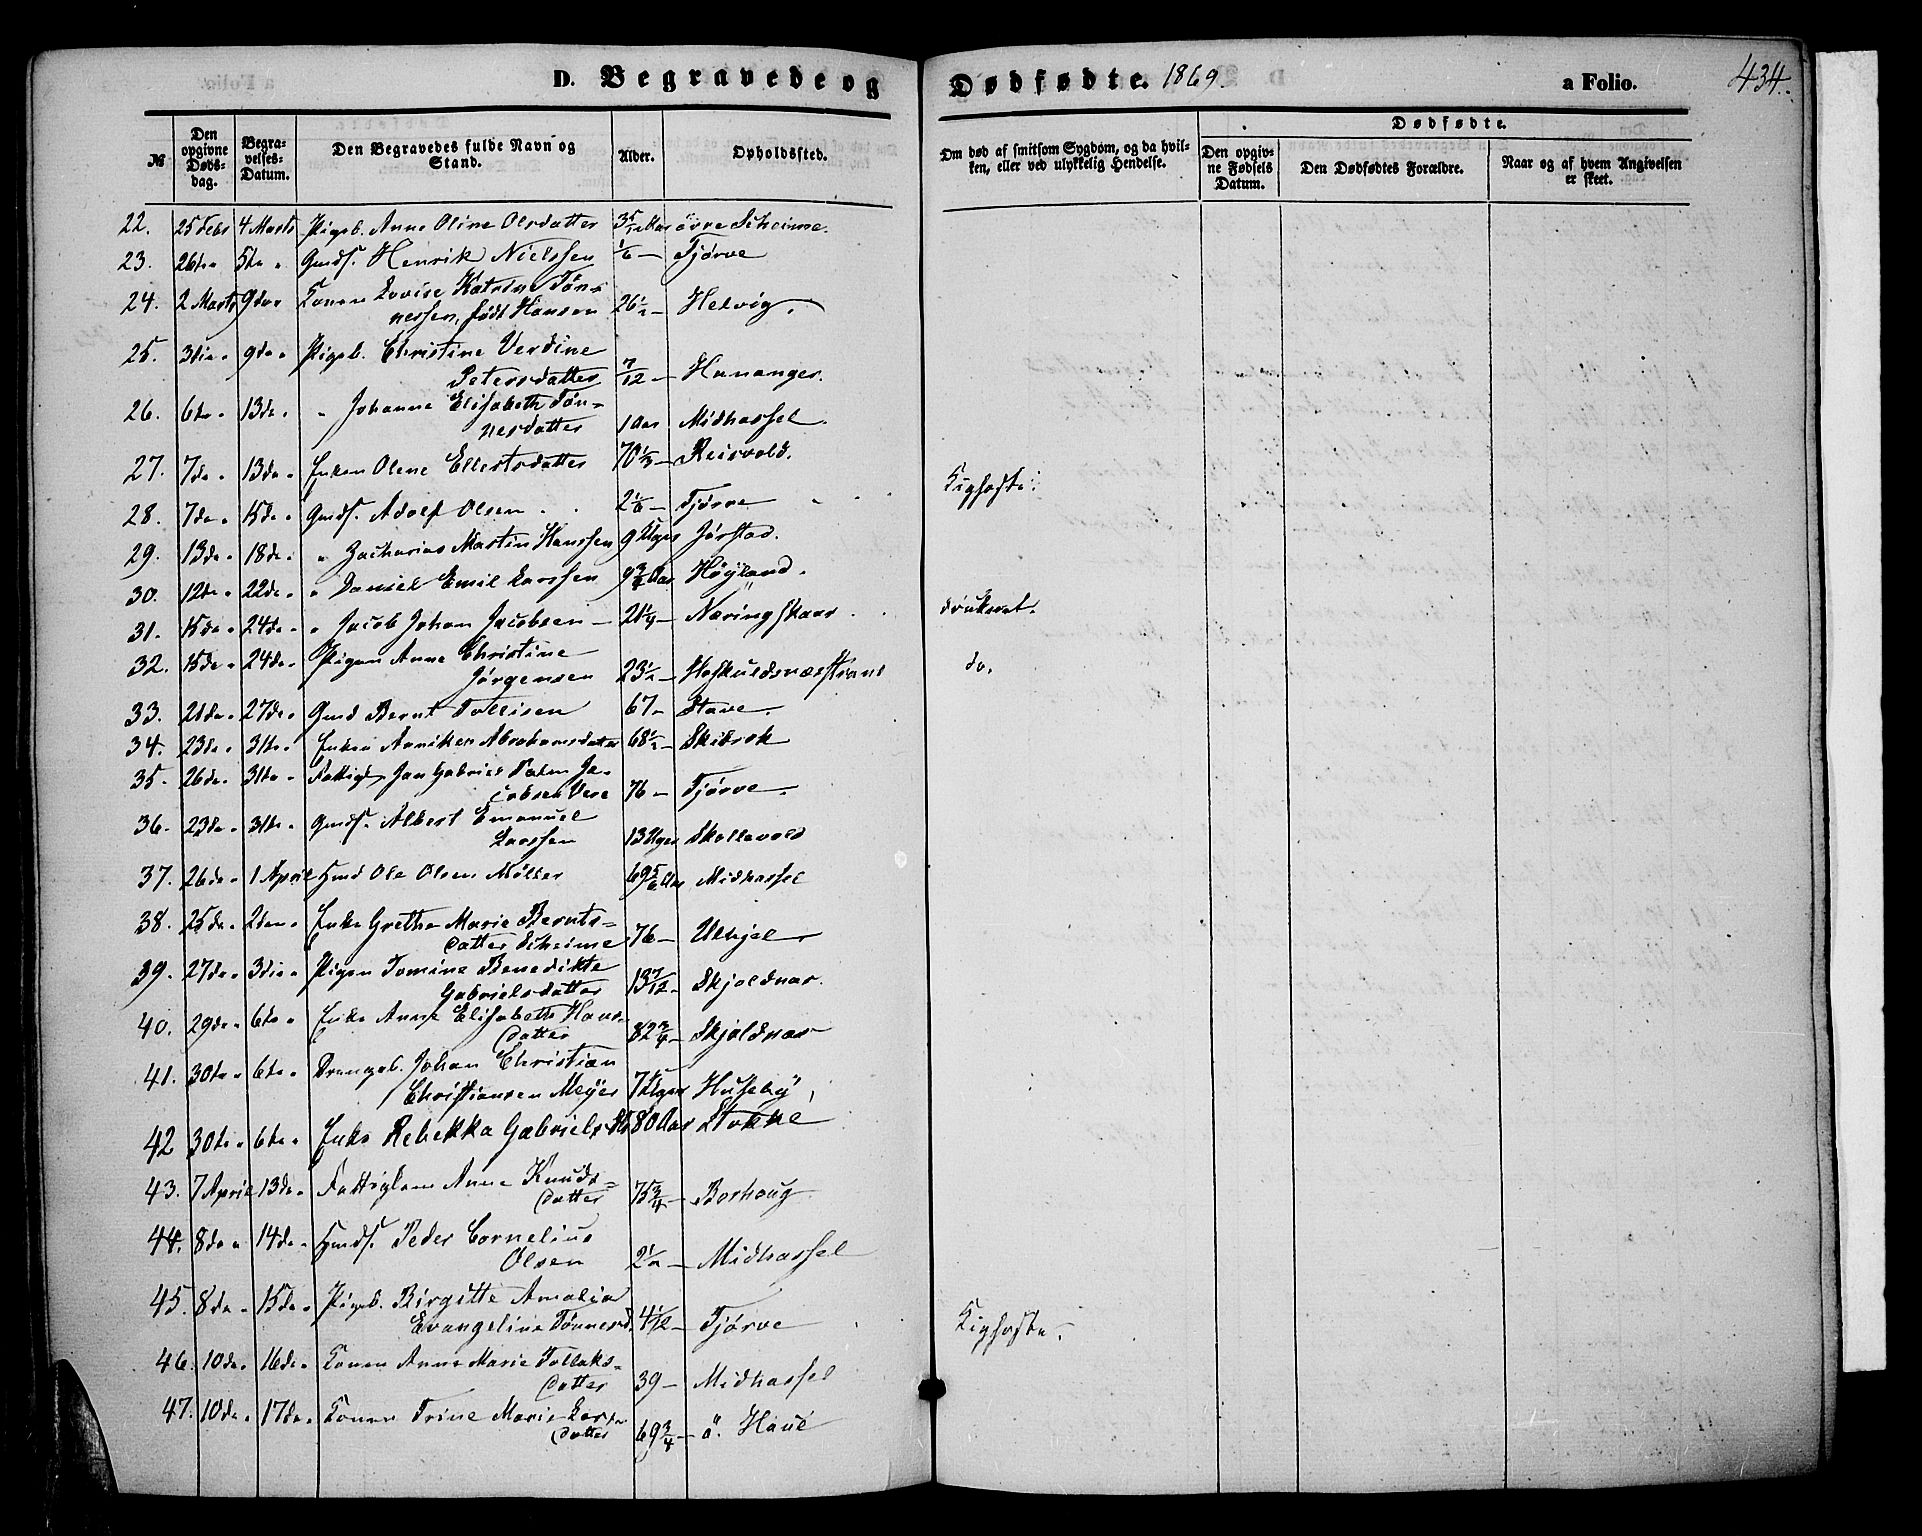 D. Begravede og Dødfødte. 1869. a Folio. 434.
№ Den opgivne Døds-dag. Begra-velses-Datum. Den Begravedes fulde Navn og Stand. Alder. Opholdssted. Om død af smitsom Sygdom, og da hvil-ken, eller ved ulykkelig Hendelse. Dødfødte. Den opgiv-ne Fødsels Datum. Den Dødfødtes Forældre. Naar og af hvem Angivelsen er skeet.
22. 25 Febr 4 Marts Pigeb. Anne Oline Olsdatter Aar övre Scheime.
23. 26de " 5te " Gmds. Henrik Nielssen 1/6 — Tjørve
24. 2 Marts 9de " Konen Lovise Katrine Tøn-
nessen, født Hansen 26 1/2 — Helvig.
25. 3die " 9de " Pigeb. Christine Verdine
Petersdatter 7/12 — Hananger.
26. 6te " 13de " " Johanne Elisabeth Tøn-
nesdatter 1 Aar Midhassel.
27. 7de " 13de " Enken Olene Ellertsdatter 70 1/3 — Reisvold.
28. 7de " 15de " Gmds. Adolf Olsen 2 1/6 — Tjørve Kighoste.
29. 13de " 18de " " Zacharias Martin Hanssen 9 Uger Jørstad.
30. 12de " 22de " " Daniel Emil Larssen 9 3/4 Aar Høyland.
31. 15de " 24de " " Jacob Johan Jacobsen — 21 1/4 — Næringskaar druknet.
32. 15de " 24de " Pigen Anne Christine
Jørgensen 23 1/2 — Høskuldsnæsstrand do.
33. 21de " 27de " Gmd Bernt Tollisen 67 — Stave.
34. 23de " 31te " Enken Anniken Abrahamsdatter 68 1/2 — Skibrok
35. 26de " 31te " Fattigl. Jan Gabriel Palm Ja-
cobsen Vere 76 — Tjørve.
36. 23de " 31te " Gmds. Albert Emanuel
Larssen 13 Uger Skollevold
37. 26de " 1 April Hmd Ole Olsen Møller 69 5/6 Aar Midhassel
38. 25de " 2den " Enke Grethe Marie Bernts-
datter Scheime 76 — Ulhjel
39. 27de " 3die " Pigen Tomine Benedikte
Gabrielsdatter 13 7/12 — Skjoldnæs.
40. 29de " 6te " Enke Anne Elisabeth Hans-
datter 82 3/4 — Skjoldnæs
41. 30te " 6te " Drengeb. Johan Christian
Christiansen Meyer 7 1/2 Uger Huseby
42 30te " 6te " Enke Rebekka Gabrielsdtr 80 Aar Stokke
43. 7 April 13de " Fattiglem Anne Knuds-
datter 75 3/4 — Borhoug
44. 8de " 14de " Hmds. Peder Cornelius
Olsen 2 1/2 — Midhassel
45. 8de " 15de " Pigeb. Birgitte Amalia
Evangeline Tønnesd. 4 1/12 — Tjørve Kighoste.
46. 10de " 16de " Konen Anne Marie Tollaks-
datter 39 — Midhassel
47. 10de " 17de " Konen Trine Marie Lars-
datter 69 3/4 — ö. Haue